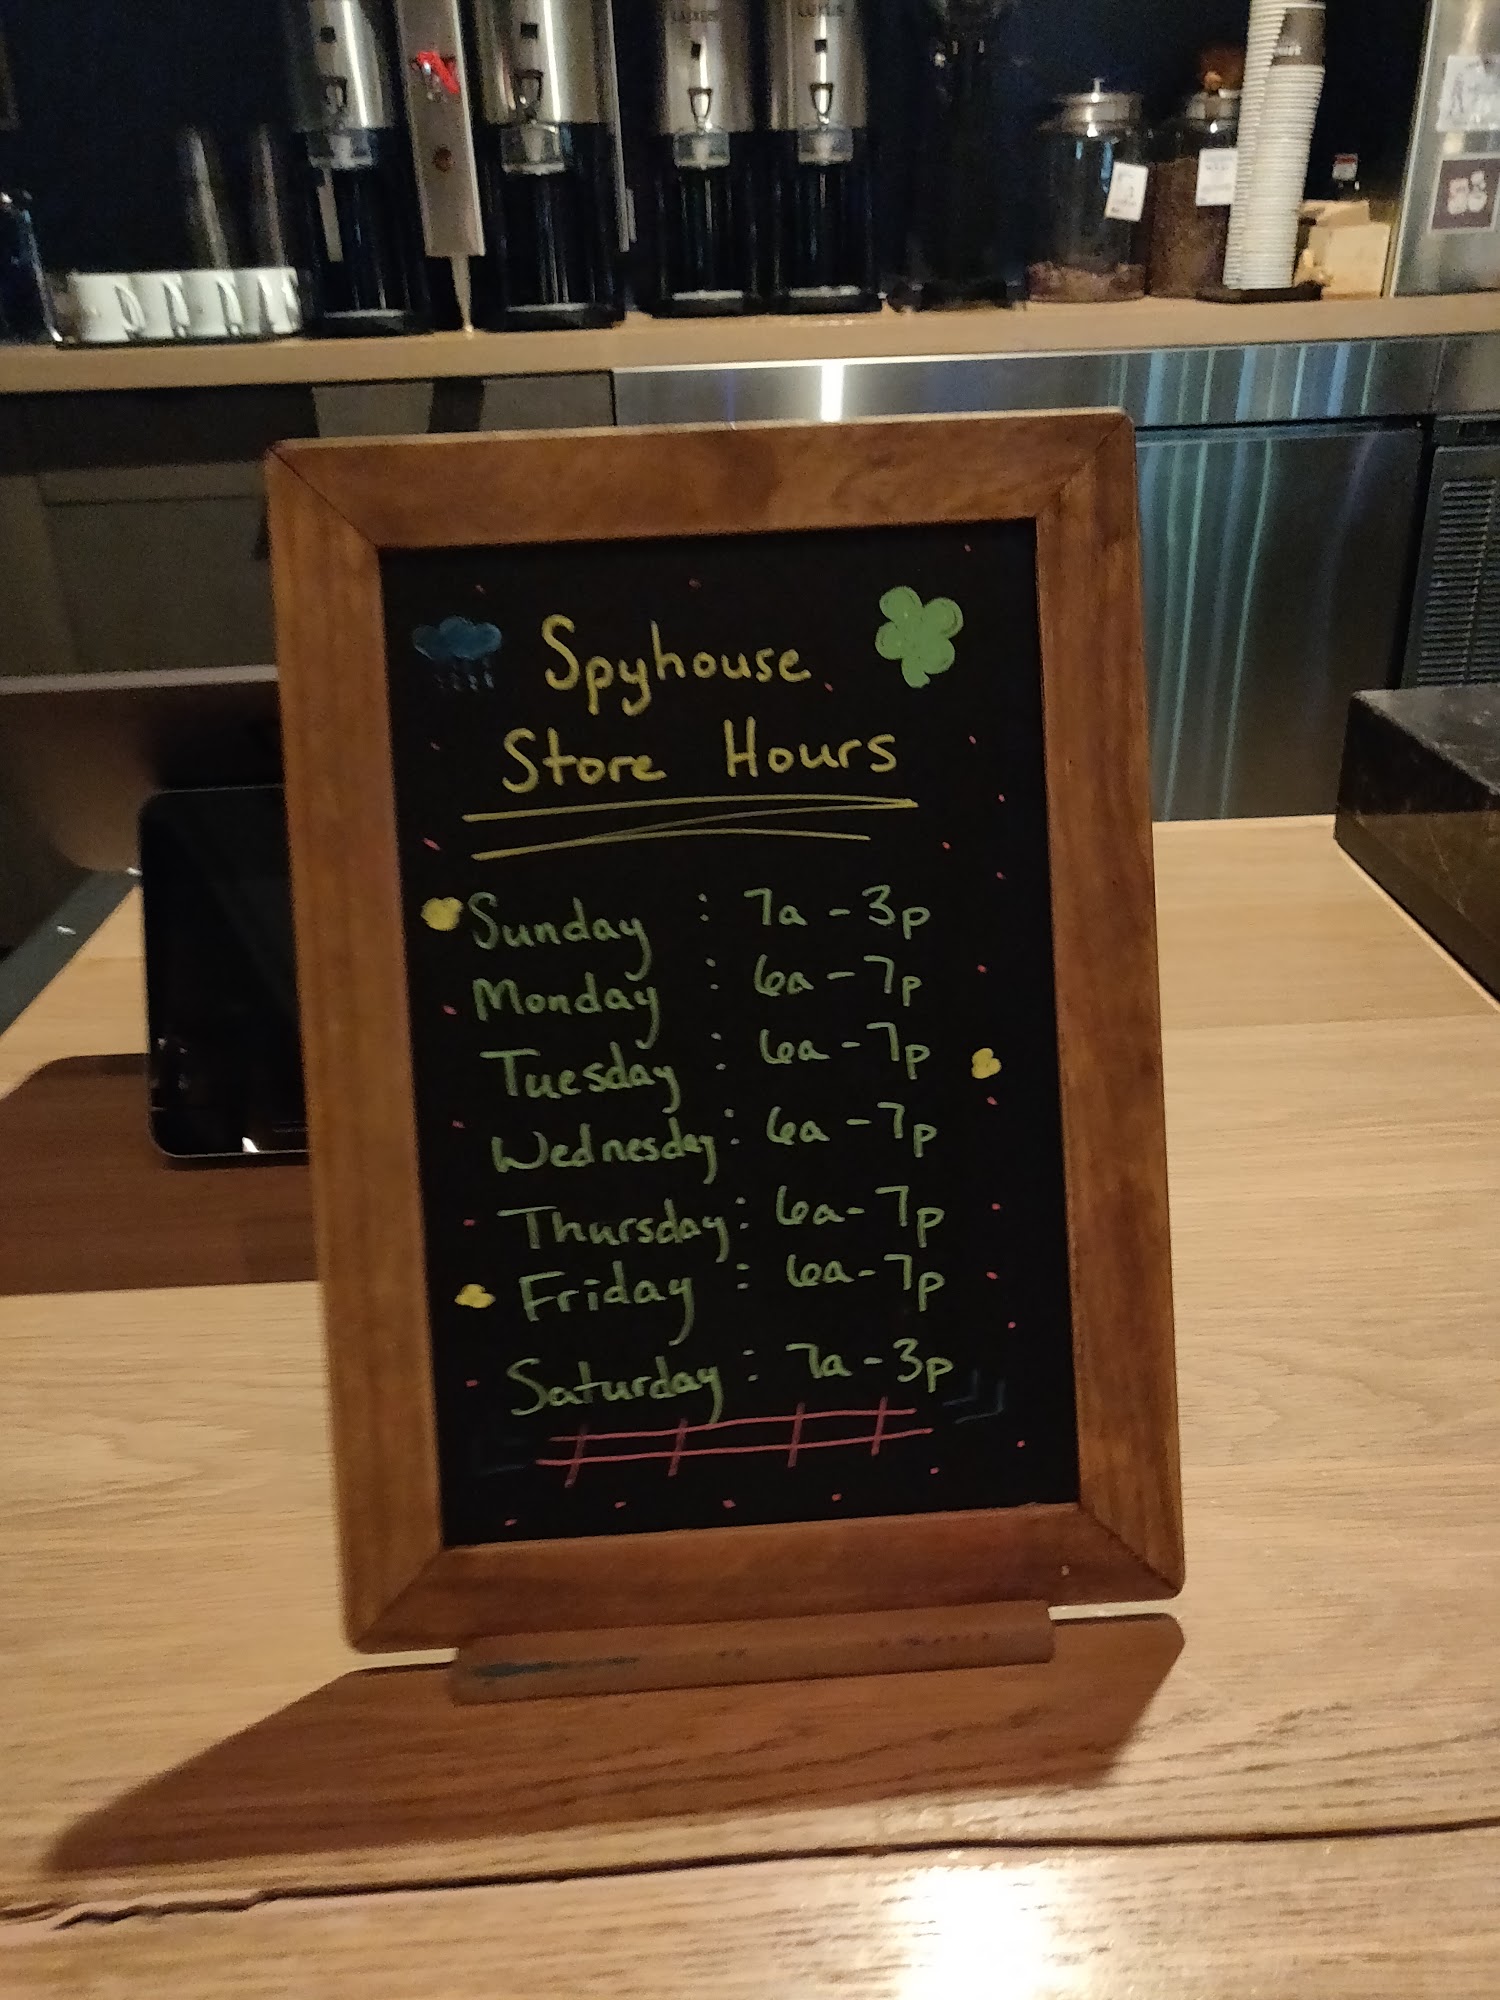 Spyhouse
Store Hours
Sunday : 7a - 3p
Monday : 6a - 7p
Tuesday : 6a - 7p
Wednesday : 6a - 7p
Thursday : 6a - 7p
Friday : 6a - 7p
Saturday : 7a - 3p